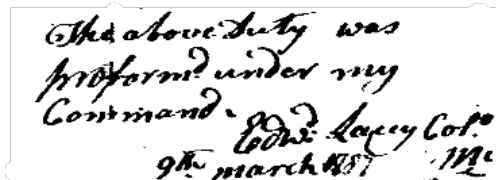 The above Duty was
proform'd under my
Command.
Edw.d Lacey Col.o
9th march 187